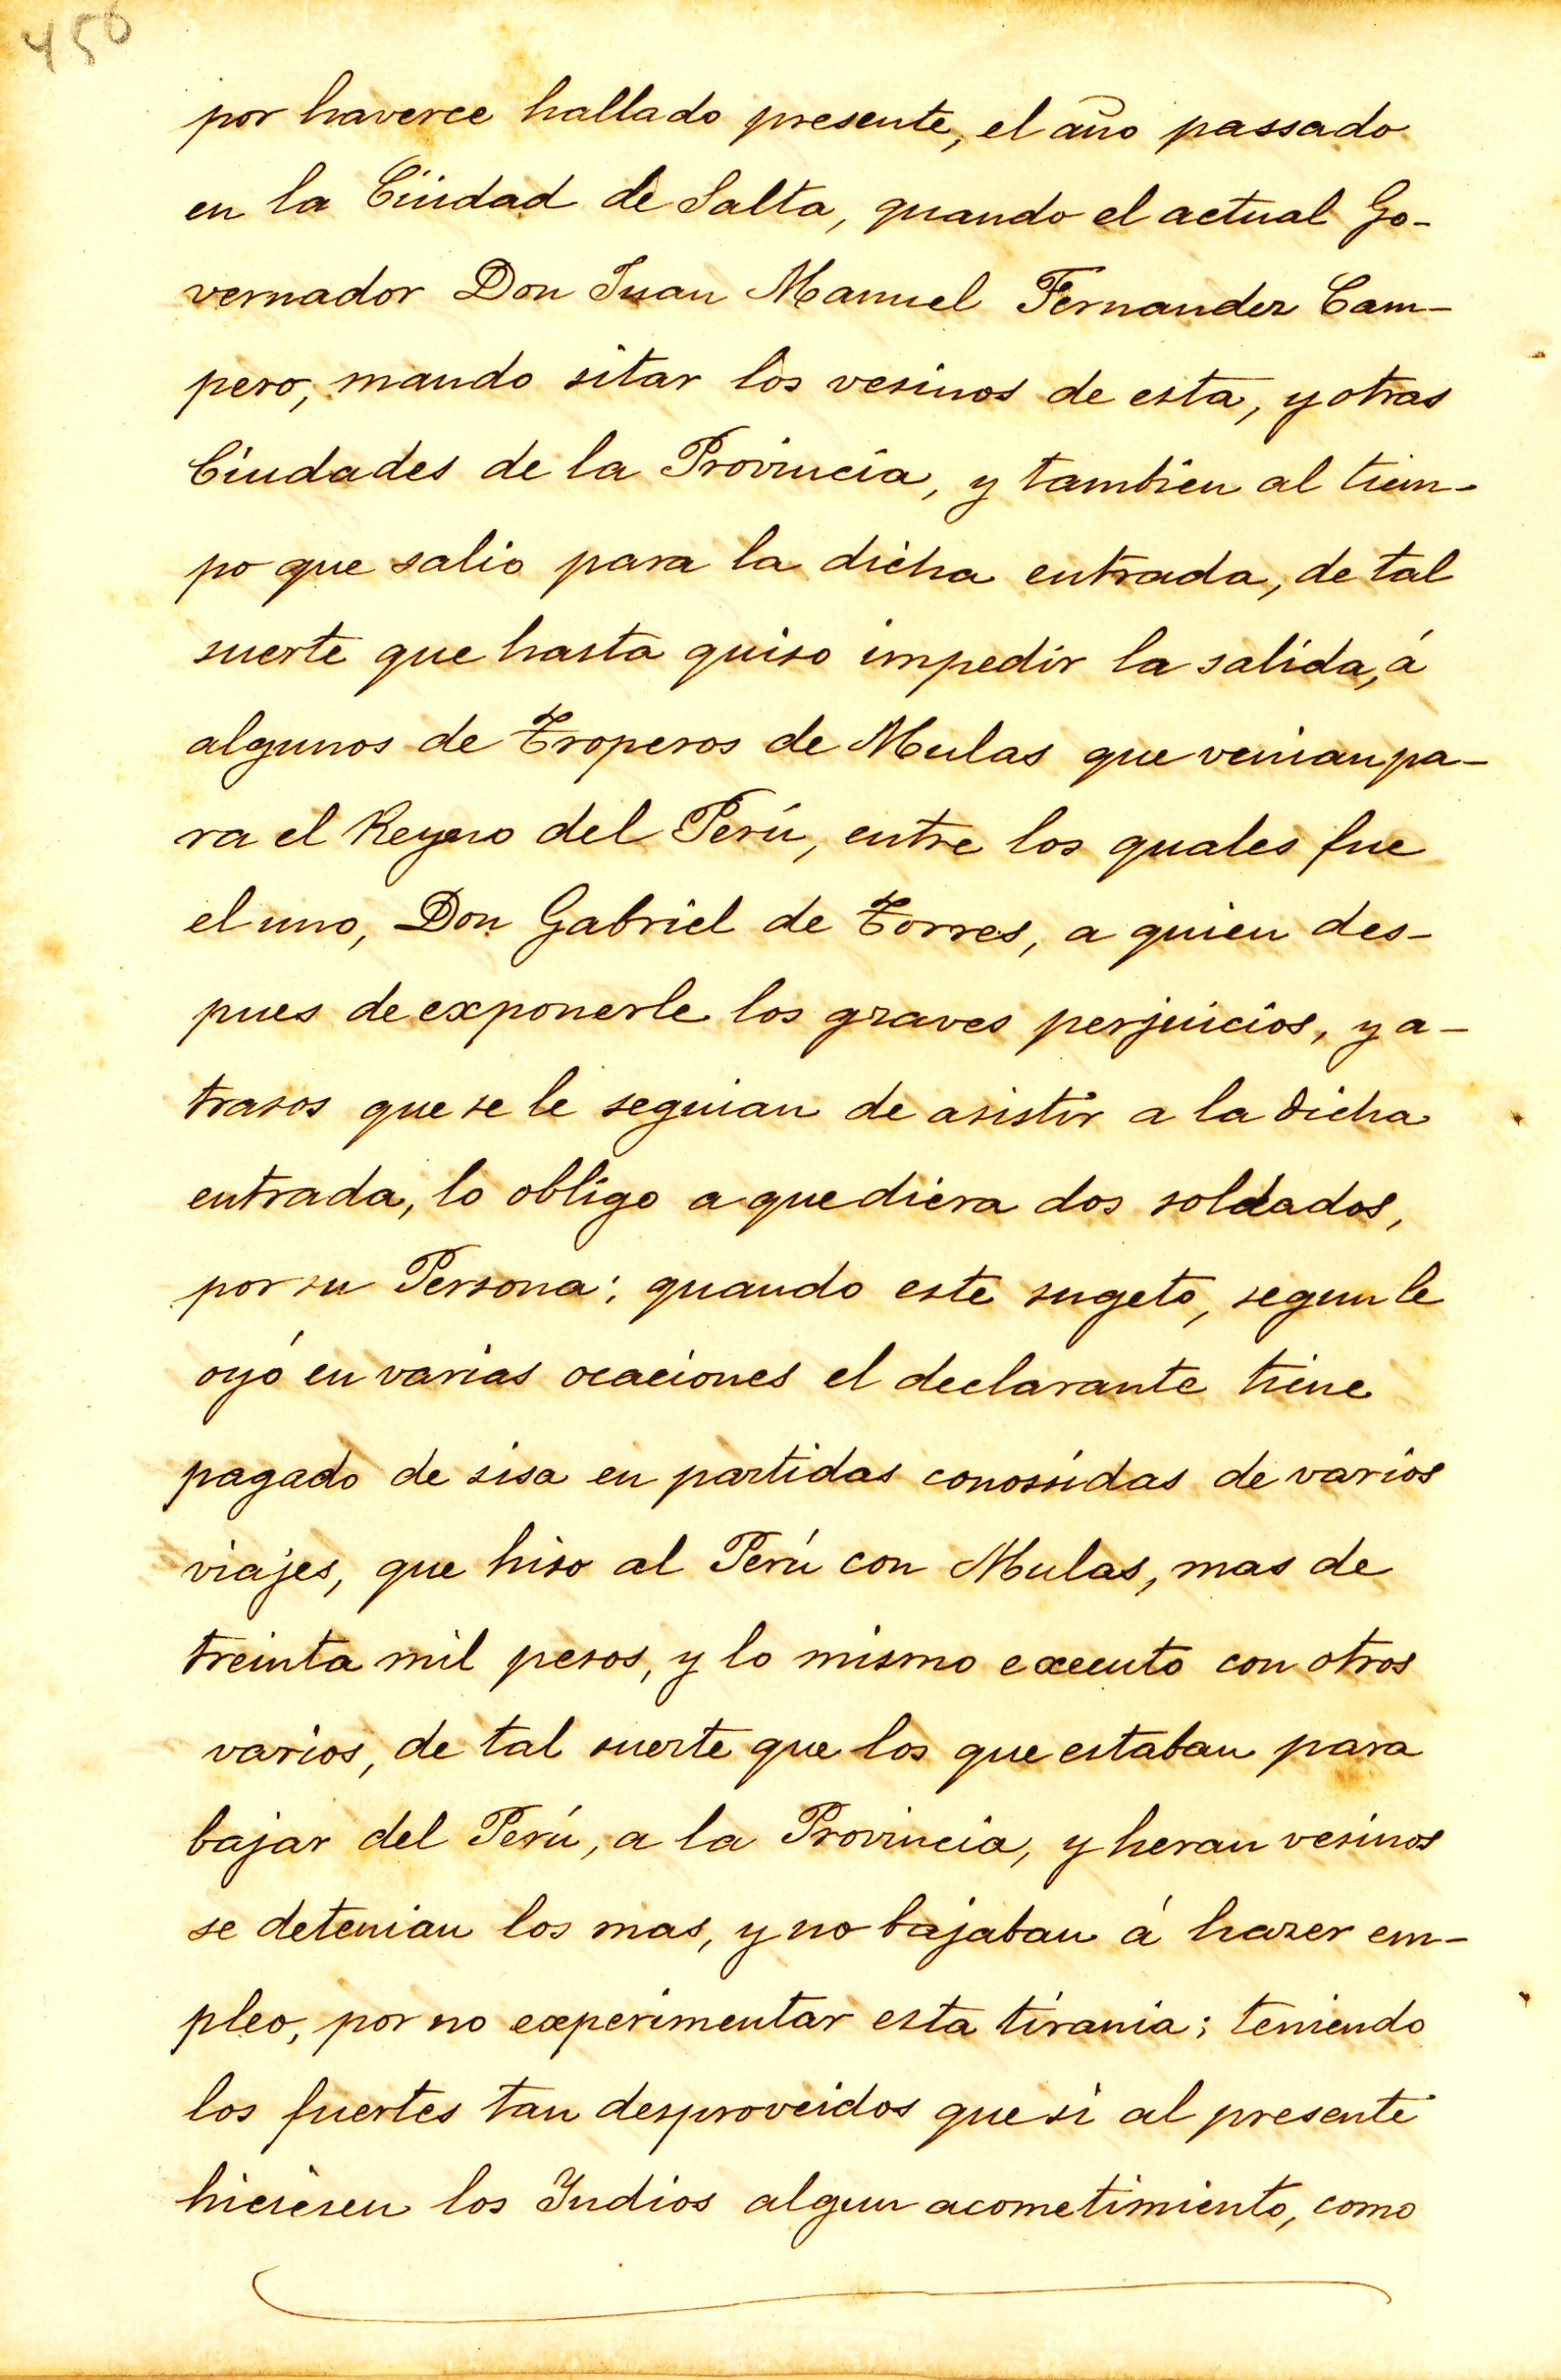 456
por haverce hallado presente, el año passado
en la Ciudad de Salta, quando el actual Go-
vernador Don Juan Manuel Fernandez Cam-
pero, mando sitar los vesinos de esta, y otras
Ciudades de la Provincia, y tambien al tiem-
po que salio para la dicha entrada, de tal
suerte que hasta quiso impedir la salida, á
algunos de Troperos de Mulas que venian pa-
ra el Reyno del Perú, entre los quales fue
el uno, Don Gabriel de Torres, a quien des-
pues de exponerle los graves perjuicios, y a-
trasos que se le seguian de asistir a la dicha
entrada, lo obligo a que diera dos soldados,
por su Persona; quando este sugeto, segun le
oyó en varias ocaciones el declarante tiene
pagado de sisa en partidas conossidas de varios
viajes, que hiso al Perú con Mulas, mas de
treinta mil pesos, y lo mismo executo con otros
varios, de tal suerte que los que estaban para
bajar del Perú, a la Provincia, y heran vesinos
se detenian los mas, y no bajaban á hazer em-
pleo, por no experimentar esta tirania; teniendo
los fuertes tan desproveidos que si al presente
hiciesen los Yndios algun acometimiento, como